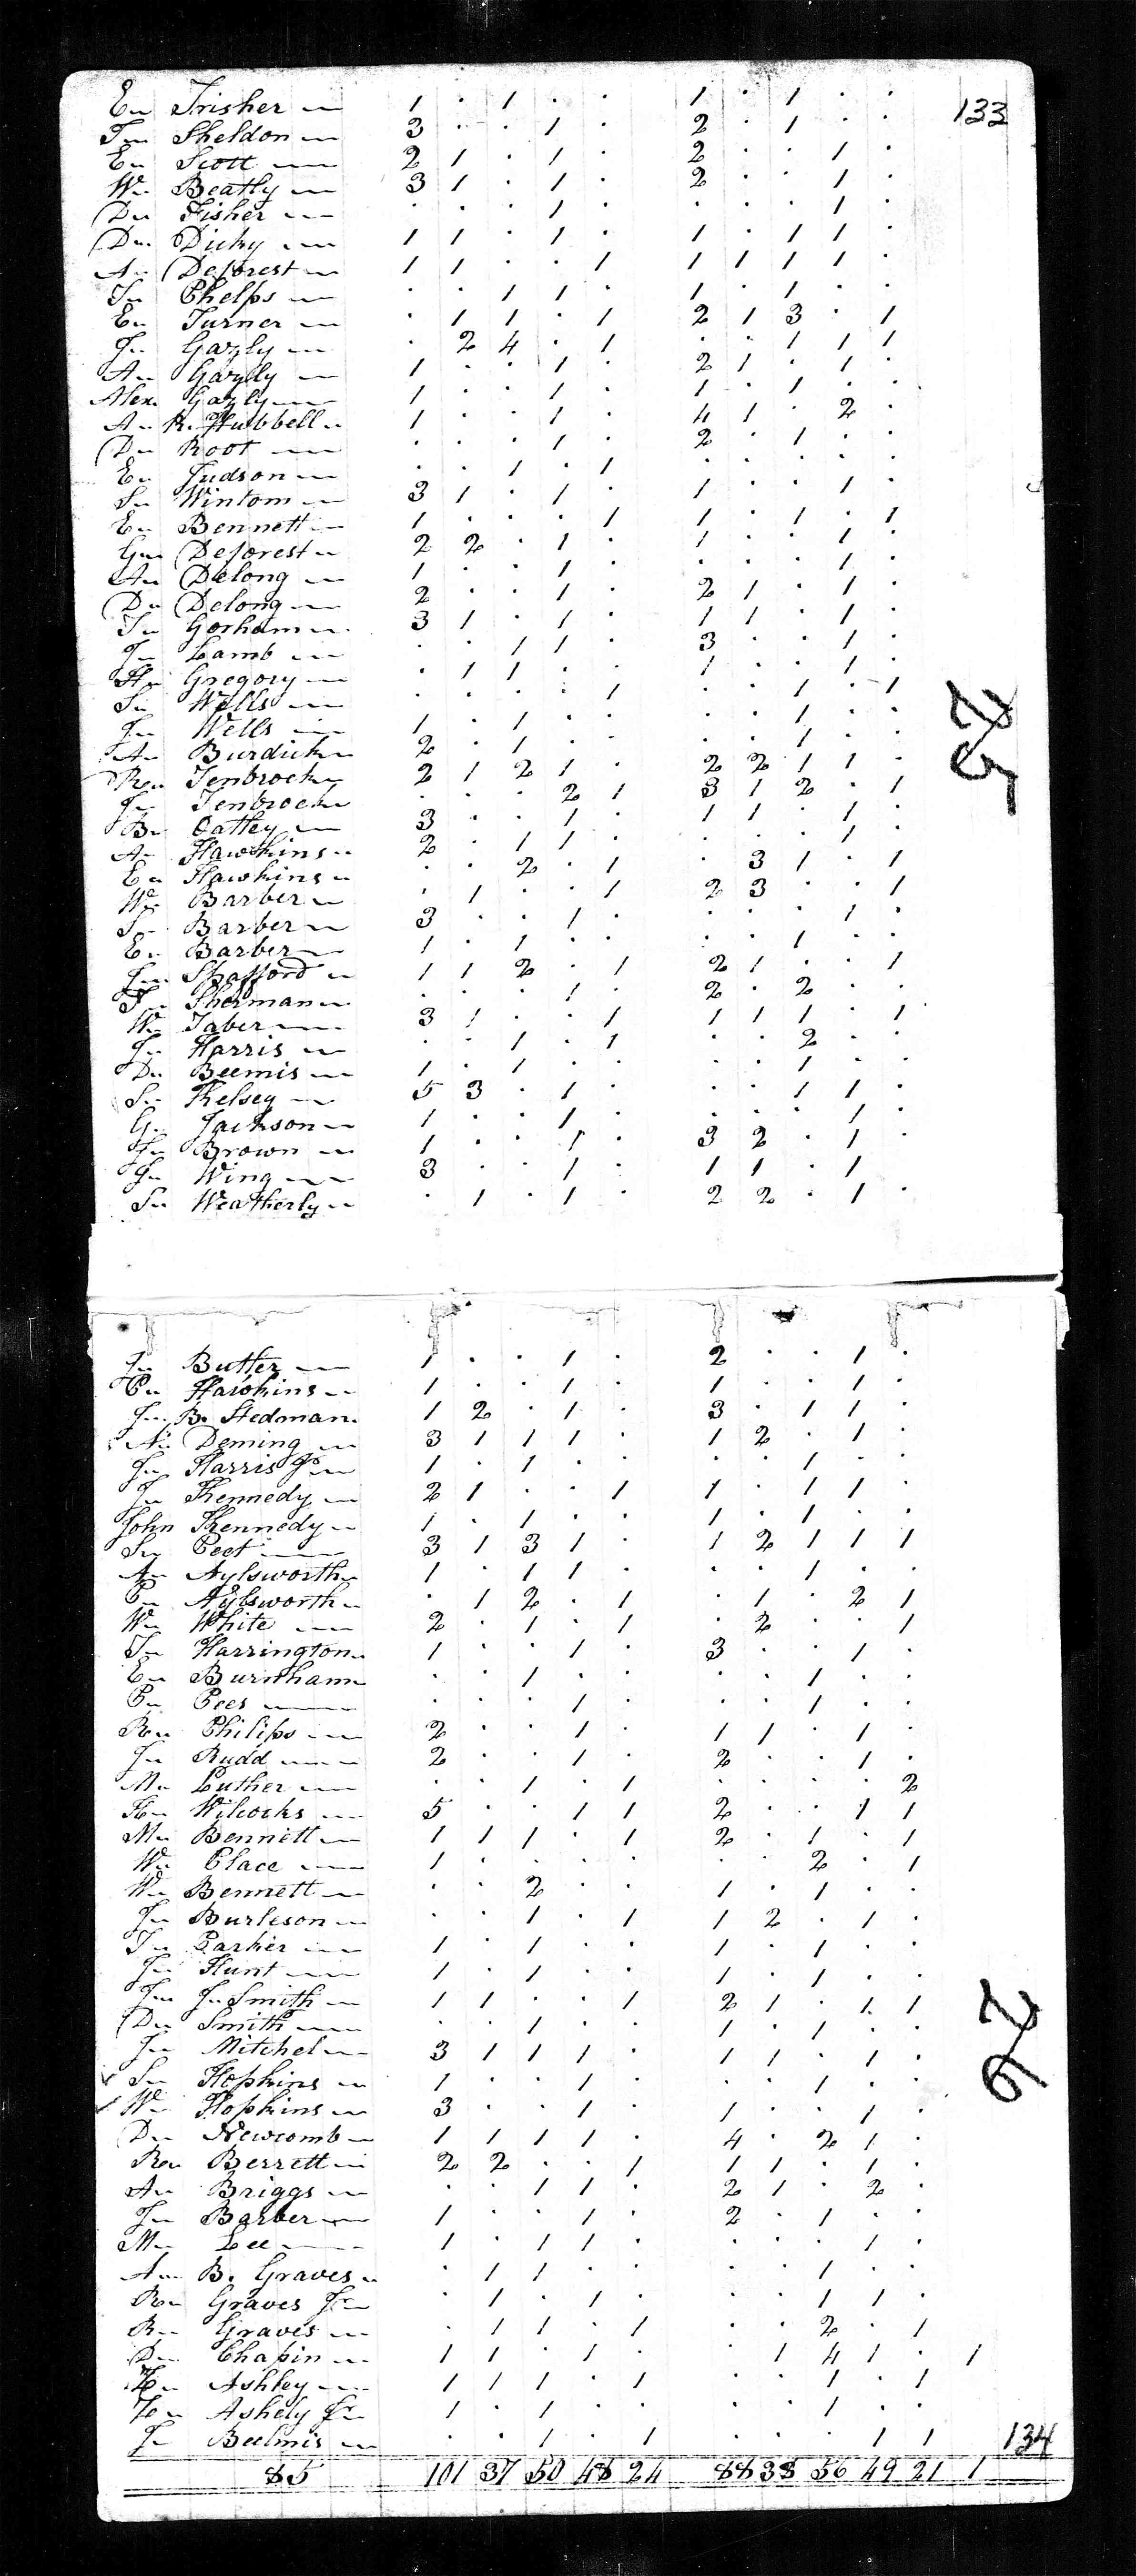 En Trisher 1 . 1 . . 1 . 1 . . 133
Tn Sheldon 3 . . 1 . 2 . 1 . .
En Scott 2 1 . 1 . 2 . . 1 .
Wm Beatly 3 1 . 1 . 2 . . 1 .
Dn Fisher . . . 1 . . . . 1 .
Dn Dicky 1 1 . 1 . 1 . 1 1 .
An Deforest 1 1 . . 1 1 1 1 1 .
Phelps . . 1 1 . 1 . 1 . .
En Turner . 1 1 . 1 2 1 3 . 1
Jn Gazly . 2 4 . 1 . . 1 1 1
An Gazly 1 . . 1 . 2 1 . 1 .
Alex. Gazly 1 . . 1 . 1 . 1 . .
An R. Hubbell 1 . . 1 . 4 1 . 2 .
Dn Root . . . 1 . 2 . 1 . .
En Judson . . 1 . 1 . . . . .
Sn Wintom 3 1 . 1 . 1 . . 1 .
En Bennett 1 . . . 1 1 . 1 . 1
Gn Deforest 2 2 . 1 . 1 . . 1 .
An Delong 1 . . 1 . . . . 1 .
Dn Delong 2 . . 1 . 2 1 . 1 .
Gorham 3 1 . 1 . 1 1 . 1 .
Jn Lamb . . 1 1 . 3 . . 1 .
Hn Gregory . 1 1 . . 1 . . 1 .
Sn Wells . . . . 1 . . 1 . 1
Jn Wells 1 . 1 . . . . 1 . .
An Burdick 2 . 1 . . . . 1 . .
Rn Tenbrock 2 1 2 1 . 2 2 1 1 .
Jn Tenbrock . . . 2 1 3 1 2 . 1
Bn Oatley 3 . . 1 . 1 1 . 1 .
An Hawkins 2 . 1 1 . . . . 1 .
En Hawkins . . 2 . 1 . 3 1 . 1
Wm Barber . 1 . . 1 2 3 . . 1
Barber 3 . . 1 . . . . 1 .
En Barber 1 . 1 . . . . 1 . .
Jn Shafford 1 1 2 . 1 2 1 . . 1
Sherman . . . 1 . 2 . 2 . .
Wm Taber 3 1 . . 1 1 1 1 . 1
Jn Harris . . 1 . 1 . . 2 . .
Dn Beemis 1 . 1 . . . . 1 . .
Sn Kelsey 5 3 . 1 . . . 1 1 .
Gn Jackson 1 . . 1 . . . . 1 .
Jn Brown 1 . . 1 . 3 2 . 1 .
Jn Wing 3 . . 1 . 1 1 . 1
Sn Weatherly . 1 . 1 . 2 2 . 1 .
75
Jn Butler 1 . . 1 . 2 . . 1 .
Pn Hawkins 1 . . 1 . 1 . . 1 .
Jn B. Stedman 1 2 . 1 . 3 . 1 1 .
An Deming 3 1 1 1 . 1 2 . 1 .
Jn Harris Jr 1 . 1 . . . . 1 . .
Jn Kennedy 2 1 . . 1 1 . 1 1 .
John Kennedy 1 . 1 . . 1 . 1 . .
Sn Peet 3 1 3 1 . 1 2 1 1 1
An Aylsworth 1 . 1 1 . . . 1 . .
Pn Aylsworth . 1 2 . 1 . 1 . 2 1
Wm White 2 . 1 . 1 . 2 . . 1
Harrington 1 . . 1 . 3 . . 1 .
En Burnham . . 1 . . . . 1 . .
Pn Pees . . . 1 . . . 1 . .
Rn Philips 2 . . 1 . 1 1 . 1 .
Jn Rudd 2 . . 1 . 2 . . 1 .
Mn Luther . . 1 . 1 . . . . 2
Hn Wilcocks 5 . . 1 1 2 . . 1 1
Mn Bennett 1 1 1 . 1 2 . 1 . 1
Wm Place 1 . . . . . . 2 . 1
Wm Bennett . . 2 . . 1 . 1 . .
Jn Burleson . . 1 . 1 1 2 . 1 .
Parker 1 . 1 . . 1 . 1 . .
Jn Hunt 1 . 1 . . 1 . 1 . .
Jn Jn Smith 1 1 . . 1 2 1 . 1 1
Dn Smith . . 1 . . 1 . 1 . .
Jn Mitchel 3 1 1 1 . 1 1 . 1 .
Sn Hopkins 1 . . 1 . . . 1 . .
Wm Hopkins 3 . . 1 . 1 . . 1 .
Dn Newcomb 1 1 1 1 . 4 . 2 1 .
Rn Berrett 2 2 . . 1 1 1 . 1 .
An Briggs . . 1 1 . 2 1 . 2 .
Jn Barber 1 . . 1 . 2 . 1 . .
Mn Lee 1 . 1 1 . . . . 1 .
An B. Graves . 1 1 . . . . 1 . .
Rn Graves Jr . 1 . 1 . . . 1 1 .
Rn Graves . 1 1 . 1 . . 2 . 1
Dn Chapin 1 1 . 1 . . 1 4 1 . 1
Ashley 1 1 1 . 1 . . 1 . 1
Ashely Jr 1 . 1 . . . . 1 . .
Jn Beelmis . . 1 . 1 . . . 1 1 134
76
85 101 37 50 48 24 88 38 56 49 21 1